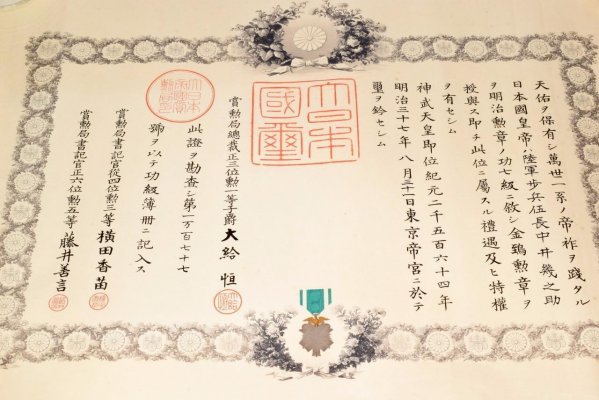 天佑ヲ保有シ萬世一系ノ帝祚ヲ踐タル
日本國皇帝ハ陸軍步兵伍長中井幾之助
ヲ明治勲章ノ功七級ニ敘シ金鵄勲章ヲ
授與ス即チ此位ニ屬スル禮遇及ヒ特權
ヲ有セシム
神武天皇即位紀元二千五百六十四年
明治三十七年八月三十一日東京帝宮ニ於テ
璽ヲ鈐セシム
大日本國璽
賞勲局總裁正三位勲一等子爵大給恒
此證ヲ勘査シ第一万百七十七
號ヲ以テ功級簿冊ニ記入ス
賞勲局書記官從四位勲三等橫田香苗
賞勲局書記官正六位勲五等藤井善言